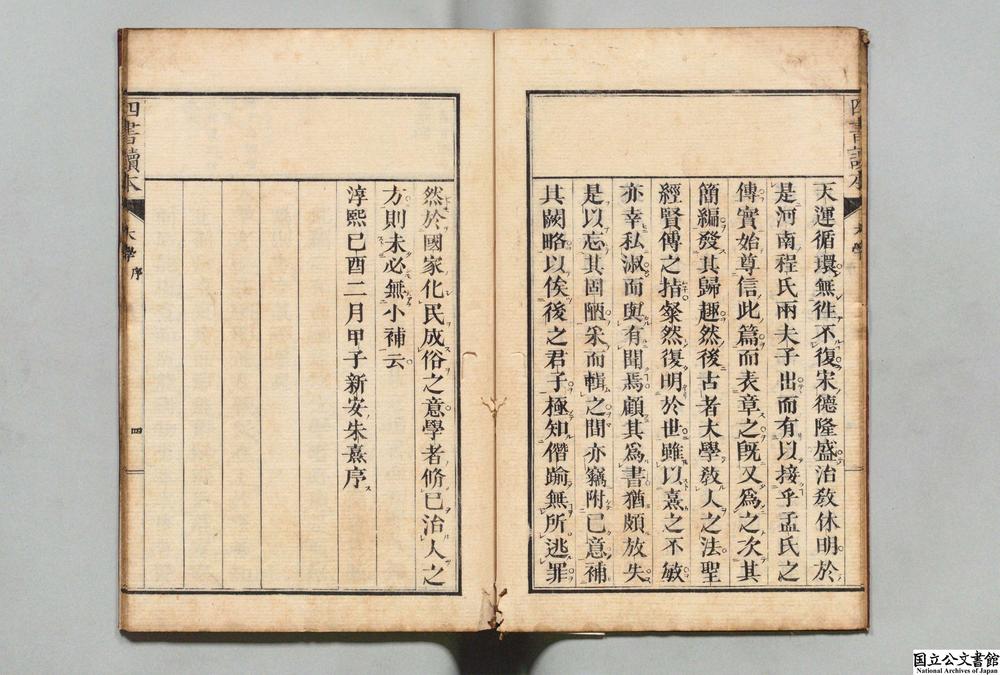 天運循環無徃不復宋德隆盛治敎休明於
是河南程氏兩夫子出而有以接乎孟氏之
傳實始尊信此篇而表章之旣又爲之次其
簡編發其歸趣然後古者大學敎人之法聖
經賢傳之指粲然復明於世雖以熹之不敏
亦幸私淑而與有聞焉顧其爲書猶頗放失
是以忘其固陋釆而輯之間亦竊附己意補
其闕略以俟後之君子極知僭踰無所逃罪
然於國家化民成俗之意學者脩己治人之
方則未必無小補云
淳熙己酉二月甲子新安朱熹序
四書讀本
大學
序
四
国立公文書館
National Archives of Japan